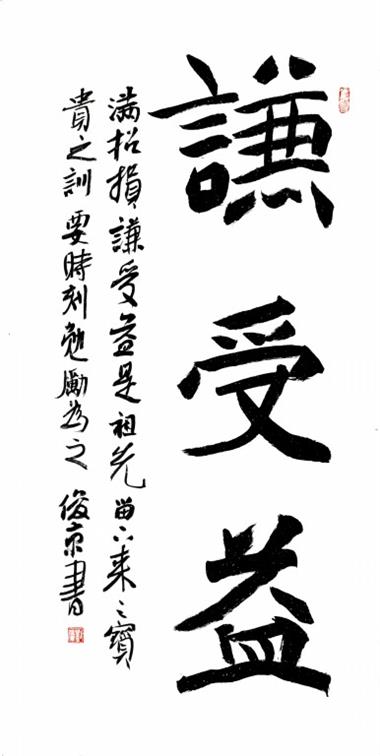 謙受益
满招損、謙受益是祖先留下来之寶
貴之訓要時刻勉勵為之 俊京書